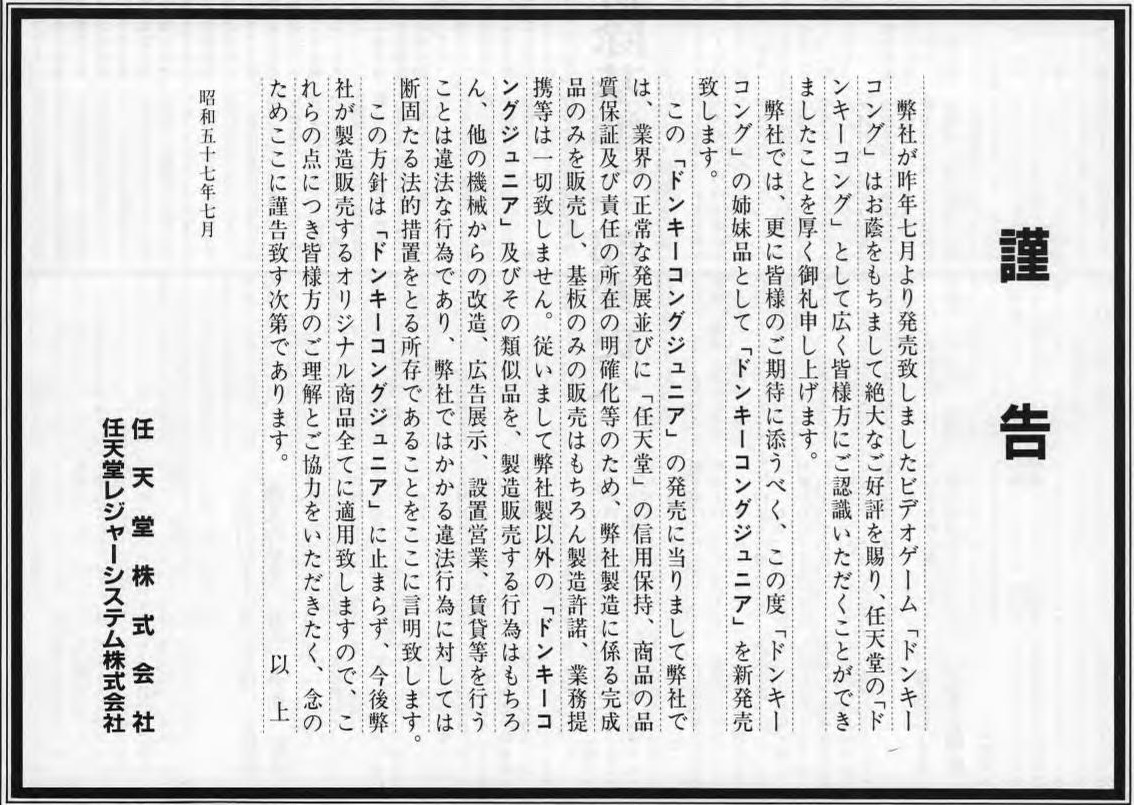 謹告
弊社が昨年七月より発売致しましたビデオゲーム「ドンキー
コング」はお蔭をもちまして絶大なご好評を賜り、任天堂の「ド
ンキーコング」として広く皆様方にご認識いただくことができ
ましたことを厚く御礼申し上げます。
弊社では、更に皆様のご期待に添うべく、この度「ドンキー
コング」の姉妹品として「ドンキーコングジュニア」を新発売
致します。
この「ドンキーコングジュニア」の発売に当りまして弊社で
は、業界の正常な発展並びに「任天堂」の信用保持、商品の品
質保証及び責任の所在の明確化等のため、弊社製造に係る完成
品のみを販売し、基板のみの販売はもちろん製造許諾、業務提
携等は一切致しません。従いまして弊社製以外の「ドンキーコ
ングジュニア」及びその類似品を、製造販売する行為はもちろ
ん、他の機械からの改造、広告展示、設置営業、賃貸等を行う
ことは違法な行為であり、弊社ではかかる違法行為に対しては
断固たる法的措置をとる所存であることをここに言明致します。
この方針は「ドンキーコングジュニア」に止まらず、今後弊
社が製造販売するオリジナル商品全てに適用致しますので、こ
れらの点につき皆様方のご理解とご協力をいただきたく、念の
ためここに謹告致す次第であります。
以上
昭和五十七年七月
任天堂株式会社
任天堂レジャーシステム株式会社